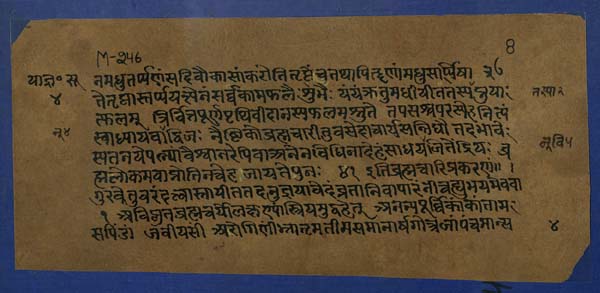 M-246
8
याज्ञ॰ स्म
४
नमधुतर्प्पणंसदिवौकासां करोतितृप्तिंचतथापितॄणांमधुसर्प्पिषा
तेतृप्तास्तर्प्पयंत्येनंसर्वकामफलैः शुभैः यंयंक्रतुमधीयीततस्पप्नुयाः
त्फलम् त्रिर्वित्तपूर्णपृथिवीदानस्पफलमश्नुते तपसश्चपरस्पेहनित्यं
स्वाध्यायवान्द्विजः नैष्ठिकोब्रह्मचारीतुवसेदाचार्यसन्निधौ तदभावेः
सतनयेपत्न्यांवैश्वानरेपिवा अनेनविधिनादेहंसाधयंजितेंद्रियः ब्र
ह्मलोकमवाप्नोतिनचेह जायतेपुनः ४९ इतिब्रह्मचारिप्रकरणं॥।
गुरवेतुवरंदत्वास्नायीततदनुज्ञयावेदंव्रतानिवापारंनीत्वाह्युभयमेववा
१ अविप्लुतब्रह्मचर्योलक्षण्यांस्त्रियमुद्वहेत् अनन्यपूर्विकांकांताम
सपिंडां जवीयसीं अरोगिणींभ्रातृमतीमसमानार्षगोत्रजां पंचमात्स
४